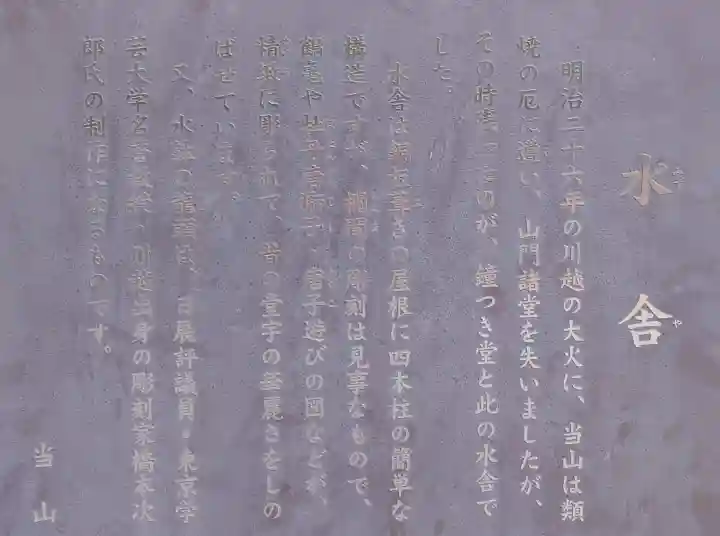 水舎
みず や
明治二十六年の川越の大火に、当山は類
焼の厄に遭い、山門諸堂を失いましたが、
その時残ったのが、鐘つき堂と此の水舎で
した。
水舎は銅板葺きの屋根に四本柱の簡単な
構造ですが、欄間の彫刻は見事なもので、
や 唐子遊びの図などが、
精緻に彫られて、昔の堂宇の華麗さをしの
ばせています。
又、水 の は、日展評議員・東京学
芸大学名誉教授・川越出身の彫刻家橋本次
郎氏の制作によるものです。
当山